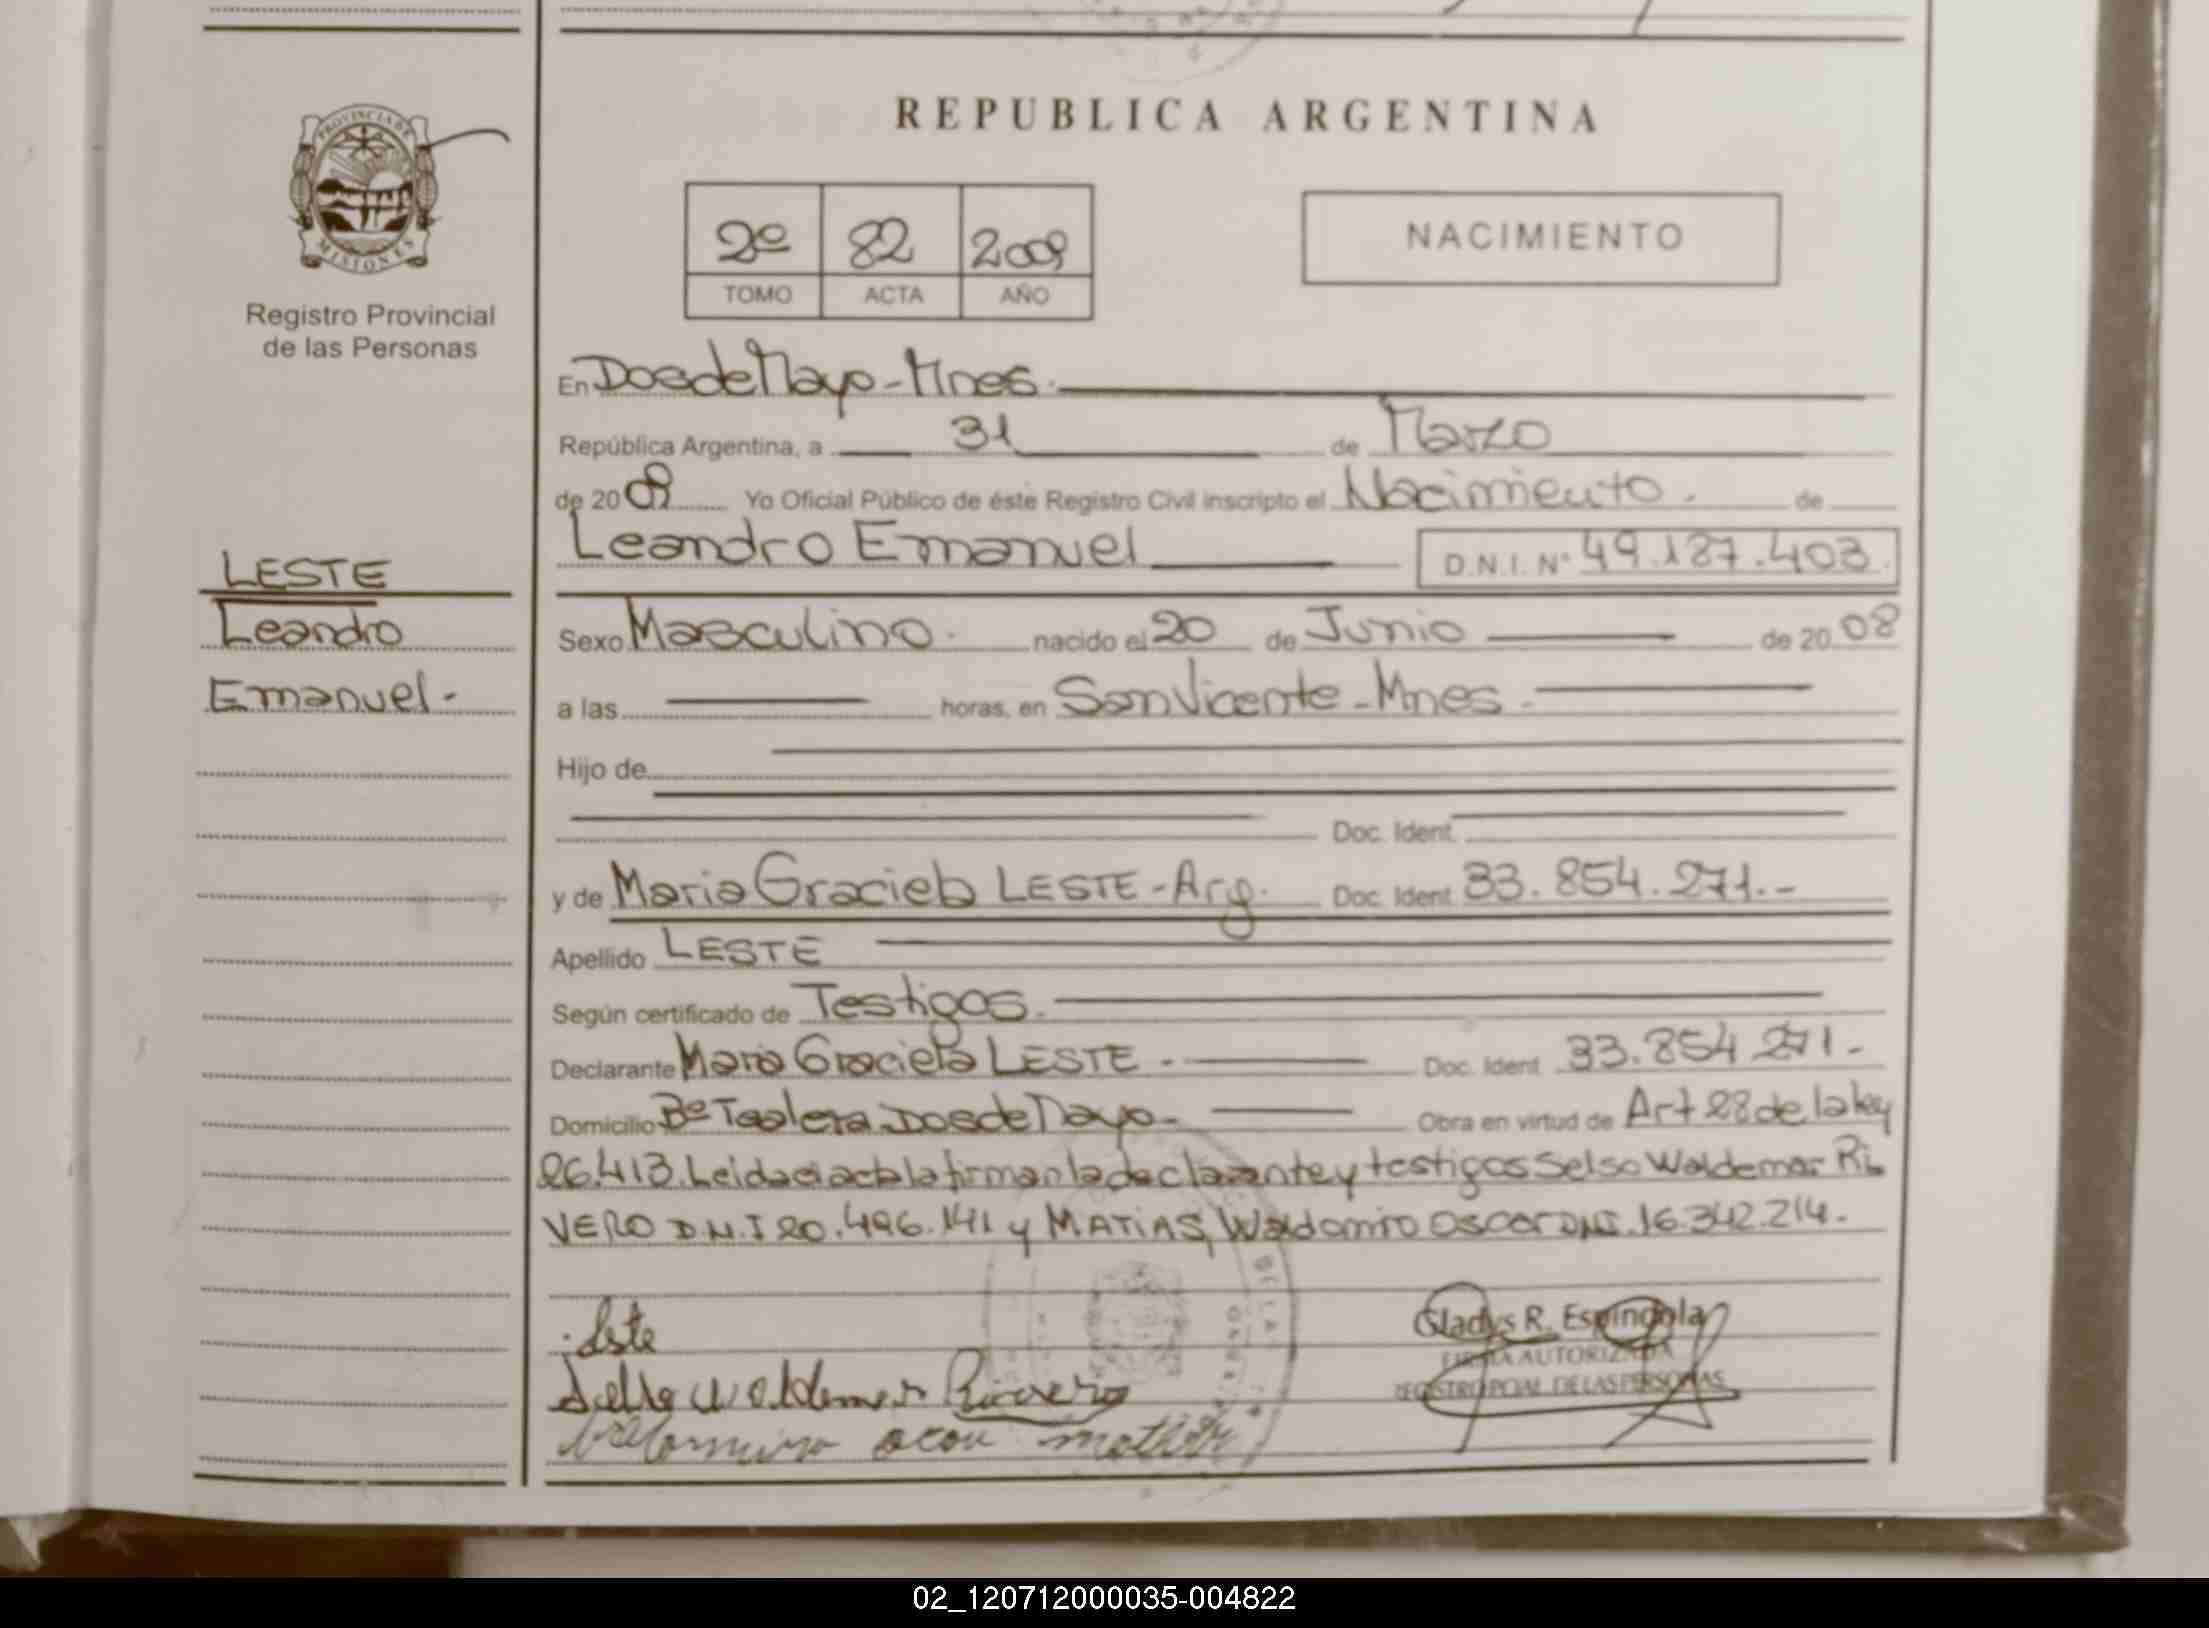 REPUBLICA ARGENTINA
PROVINCIA DE
MISIONES
Registro Provincial
de las Personas
2º 82 2009
TOMO ACTA AÑO
NACIMIENTO
En Dos de Mayo - Mnes.
República Argentina, a 31 de Marzo
de 20 09 Yo Oficial Público de éste Registro Civil inscripto el Nacimiento. de
Leandro Emanuel D.N.I. Nº 49.187.403.
LESTE
Leandro
Emanuel.-
Sexo Masculino. nacido el 20 de Junio de 20 08
a las horas, en San Vicente - Mnes.
Hijo de
Doc. Ident.
y de Maria Graciela LESTE - Arg. Doc. Ident. 33.854.271.-
Apellido LESTE
Según certificado de Testigos.
Declarante Maria Graciela LESTE. - Doc. Ident. 33.854.271-
Domicilio Bº Tealera Dos de Mayo - Obra en virtud de Art 28 de la ley
26.413. Leida el acta la firman la declarante y testigos Selso Waldemar Ri
VERO D.N.I 20.496.141 y MATIAS, Waldomiro Oscar DNI. 16.342.214.-
Leste
Waldemar Rivero
Gladys R. Espindola
FIRMA AUTORIZADA
REGISTRO PCIAL. DE LAS PERSONAS
02_120712000035-004822